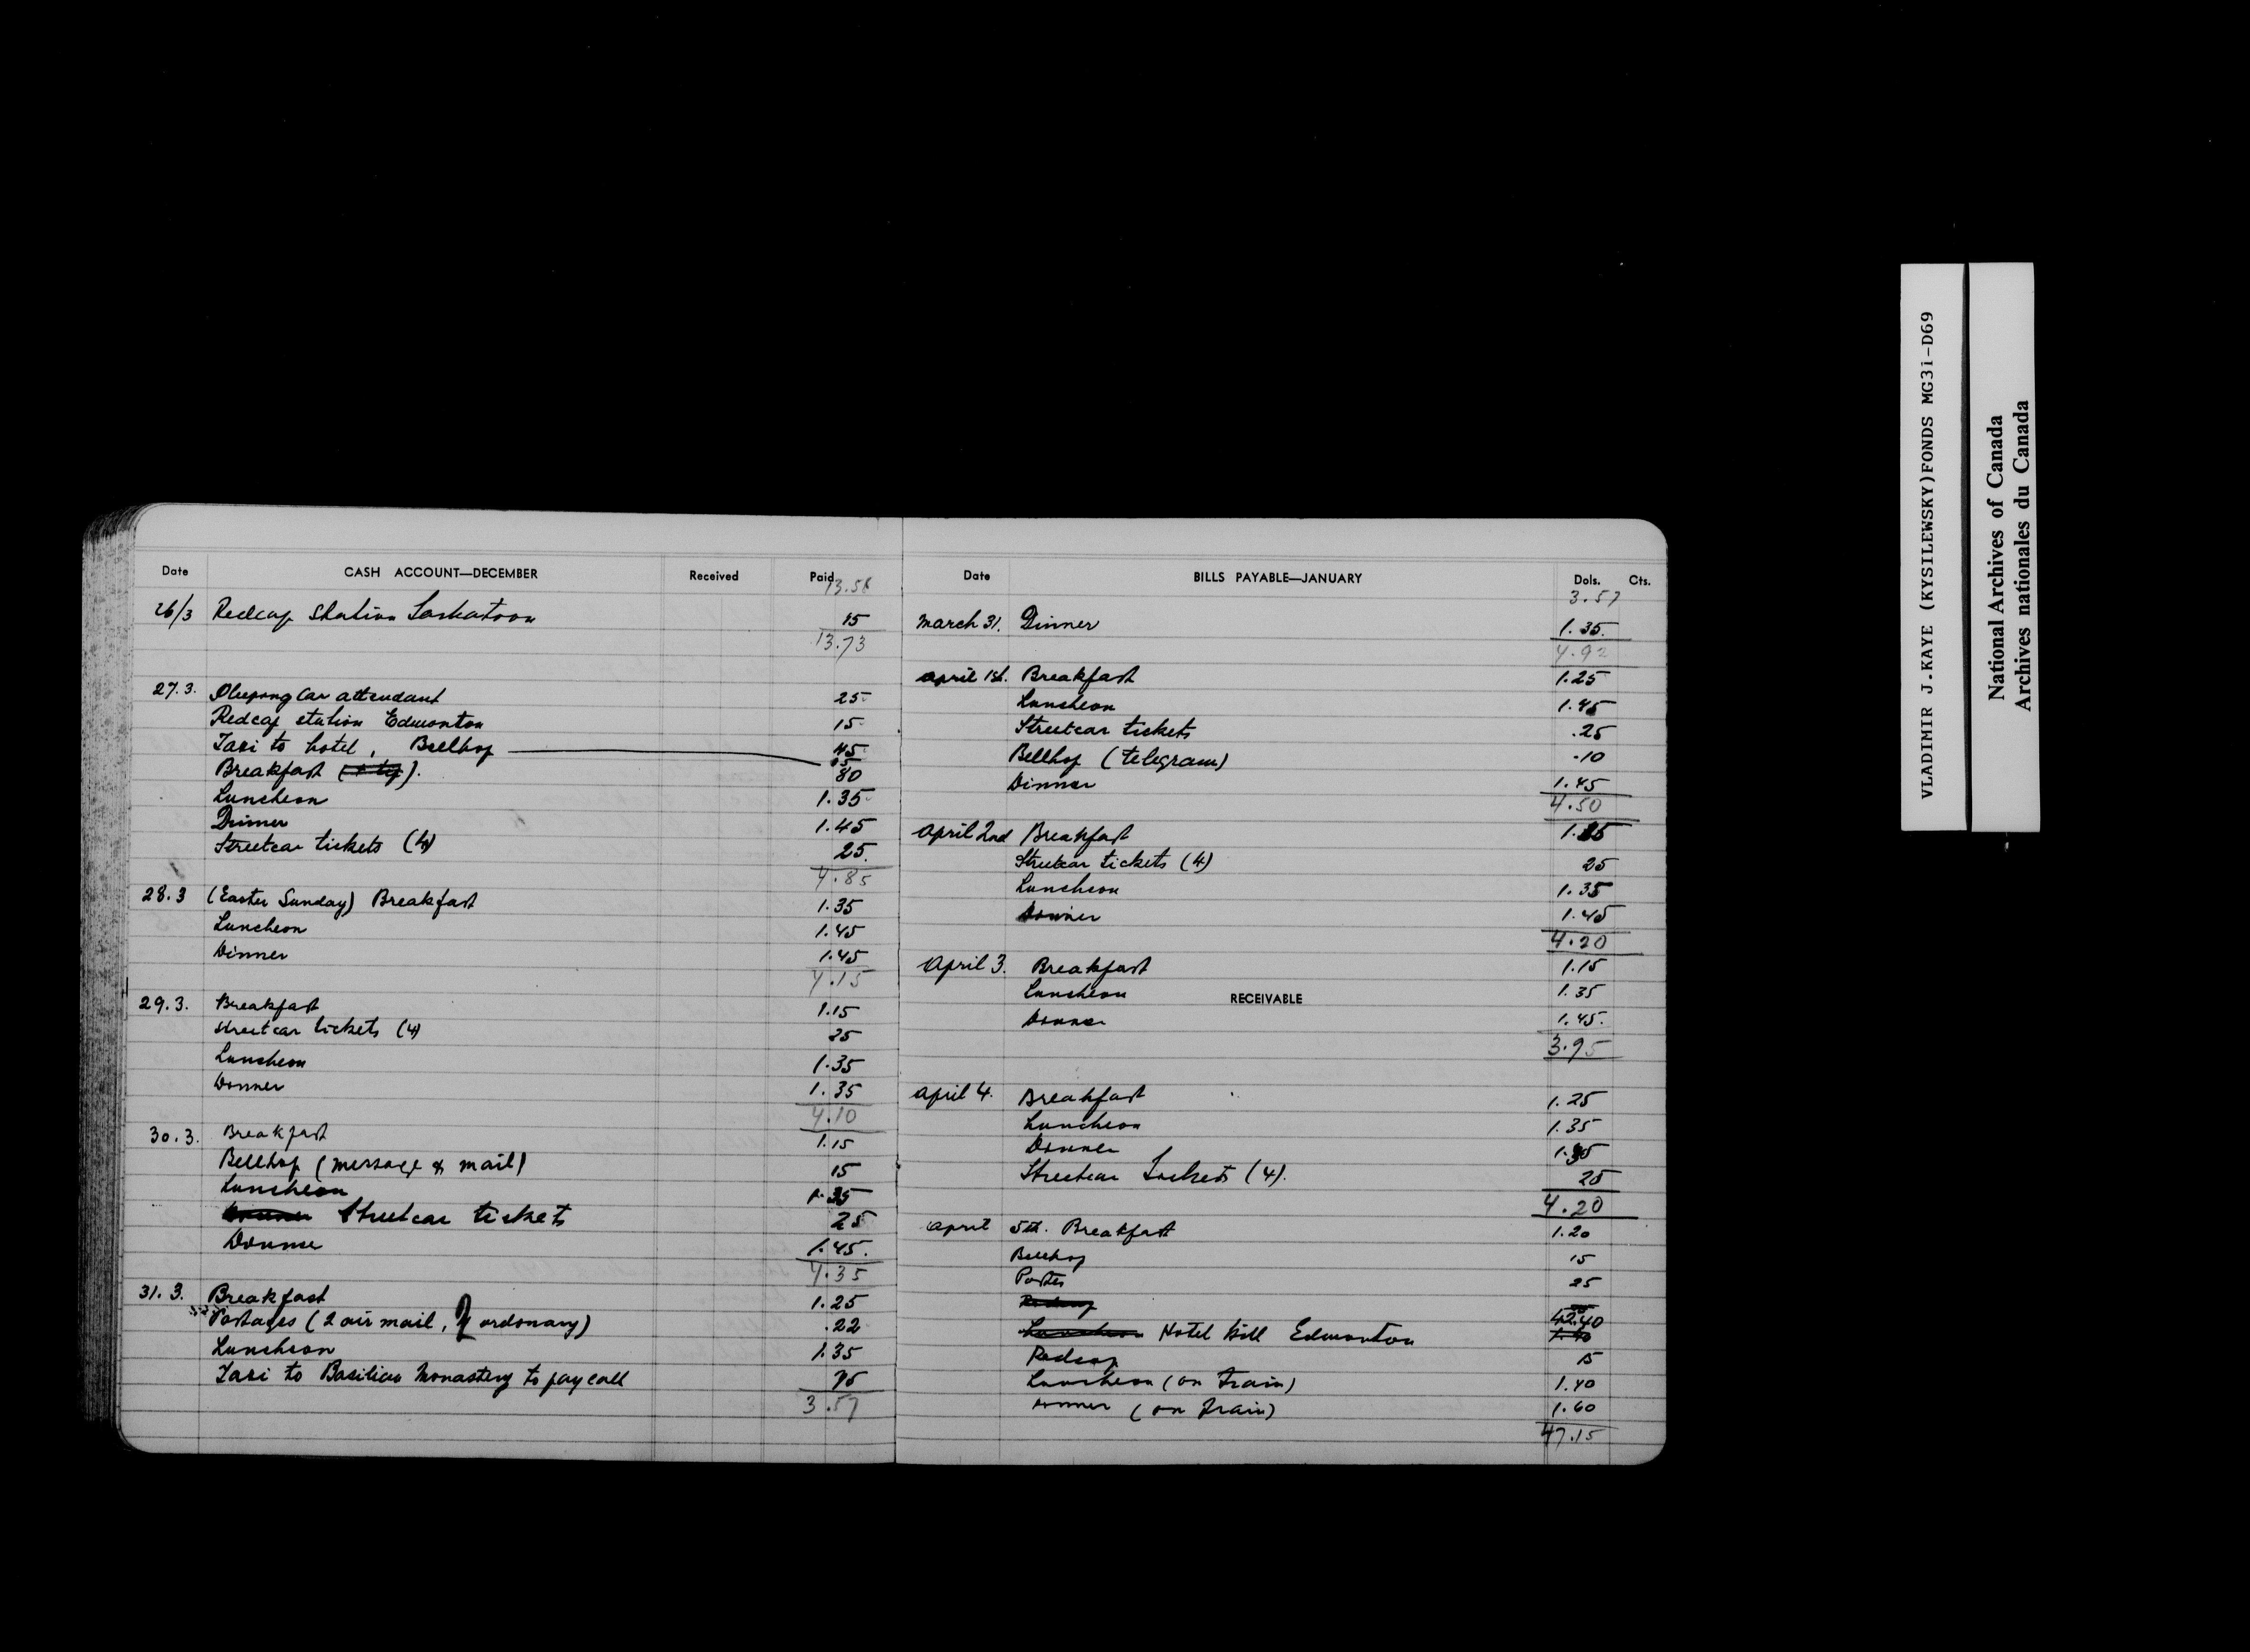 Date CASH ACCOUNT—DECEMBER Received Paid
13.58
26/3 Redcap Station Saskatoon 15
13.73
27.3. Sleeping Car attendant 25
Redcap station Edmonton 15
Taxi to hotel, Bellhop 45
15
Breakfast 80
Luncheon 1.35
Dinner 1.45
Streetcar tickets (4) 25.
4.85
28.3 (Easter Sunday) Breakfast 1.35
Luncheon 1.45
Dinner 1.45
4.15
29.3. Breakfast 1.15
Streetcar tickets (4) 25
Luncheon 1.35
Dinner 1.35
4.10
30.3. Breakfast 1.15
Bellhop (message & mail) 15
Luncheon 1.35
Streetcar tickets 25
Dinner 1.45.
4.35
31.3. Breakfast 1.25
Postages (2 air mail, 2 ordonary) .22
Luncheon 1.35
Taxi to Basilian Monastery to pay call 75
3.57
Date BILLS PAYABLE—JANUARY Dols. Cts.
3.57
March 31. Dinner 1.35.
4.92
April 1st. Breakfast 1.25
Luncheon 1.45
Streetcar tickets .25
Bellhop (telegram) .10
Dinner 1.45
4.50
April 2nd Breakfast 1.15
Streetcar tickets (4) 25
Luncheon 1.35
Dinner 1.45
4.20
April 3. Breakfast 1.15
Luncheon 1.35
RECEIVABLE
Dinner 1.45.
3.95
April 4. Breakfast 1.25
Luncheon 1.35
Dinner 1.35
Streetcar Tickets (4). 25
4.20
April 5th. Breakfast 1.20
Bellhop 15
Porter 25
Redcap
Luncheon Hotel Bill Edmonton 42.40
1.40
Redcap 15
Luncheon (on Train) 1.40
Dinner (on Train) 1.60
47.15
VLADIMIR J.KAYE (KYSILEWSKY)FONDS MG31-D69
National Archives of Canada
Archives nationales du Canada